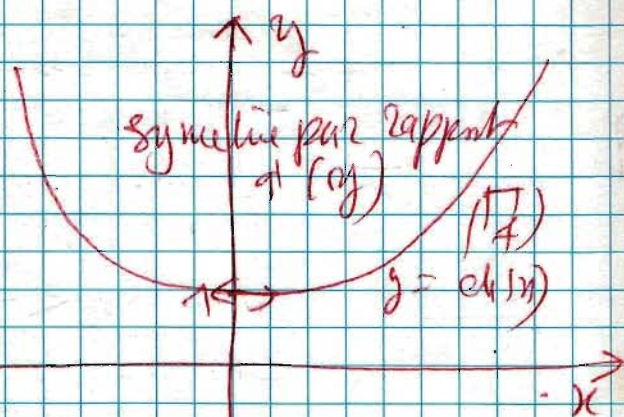 y
symetrie par rapport
à (oy)
(Γf)
1
y = ch(x)
x